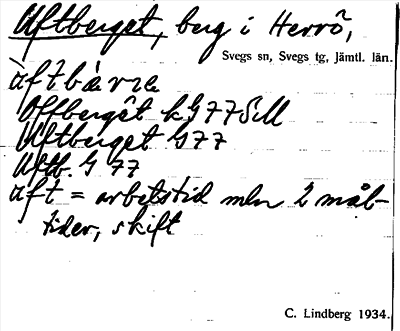 Uftberget, berg i Herrö,
Svegs sn, Svegs tg, Jämtl. län.
Offberget kG77SvM
Uftberget G77
Uftb. G 77
= arbetstid mln 2 mål-
tider, skift
C. Lindberg 1934.